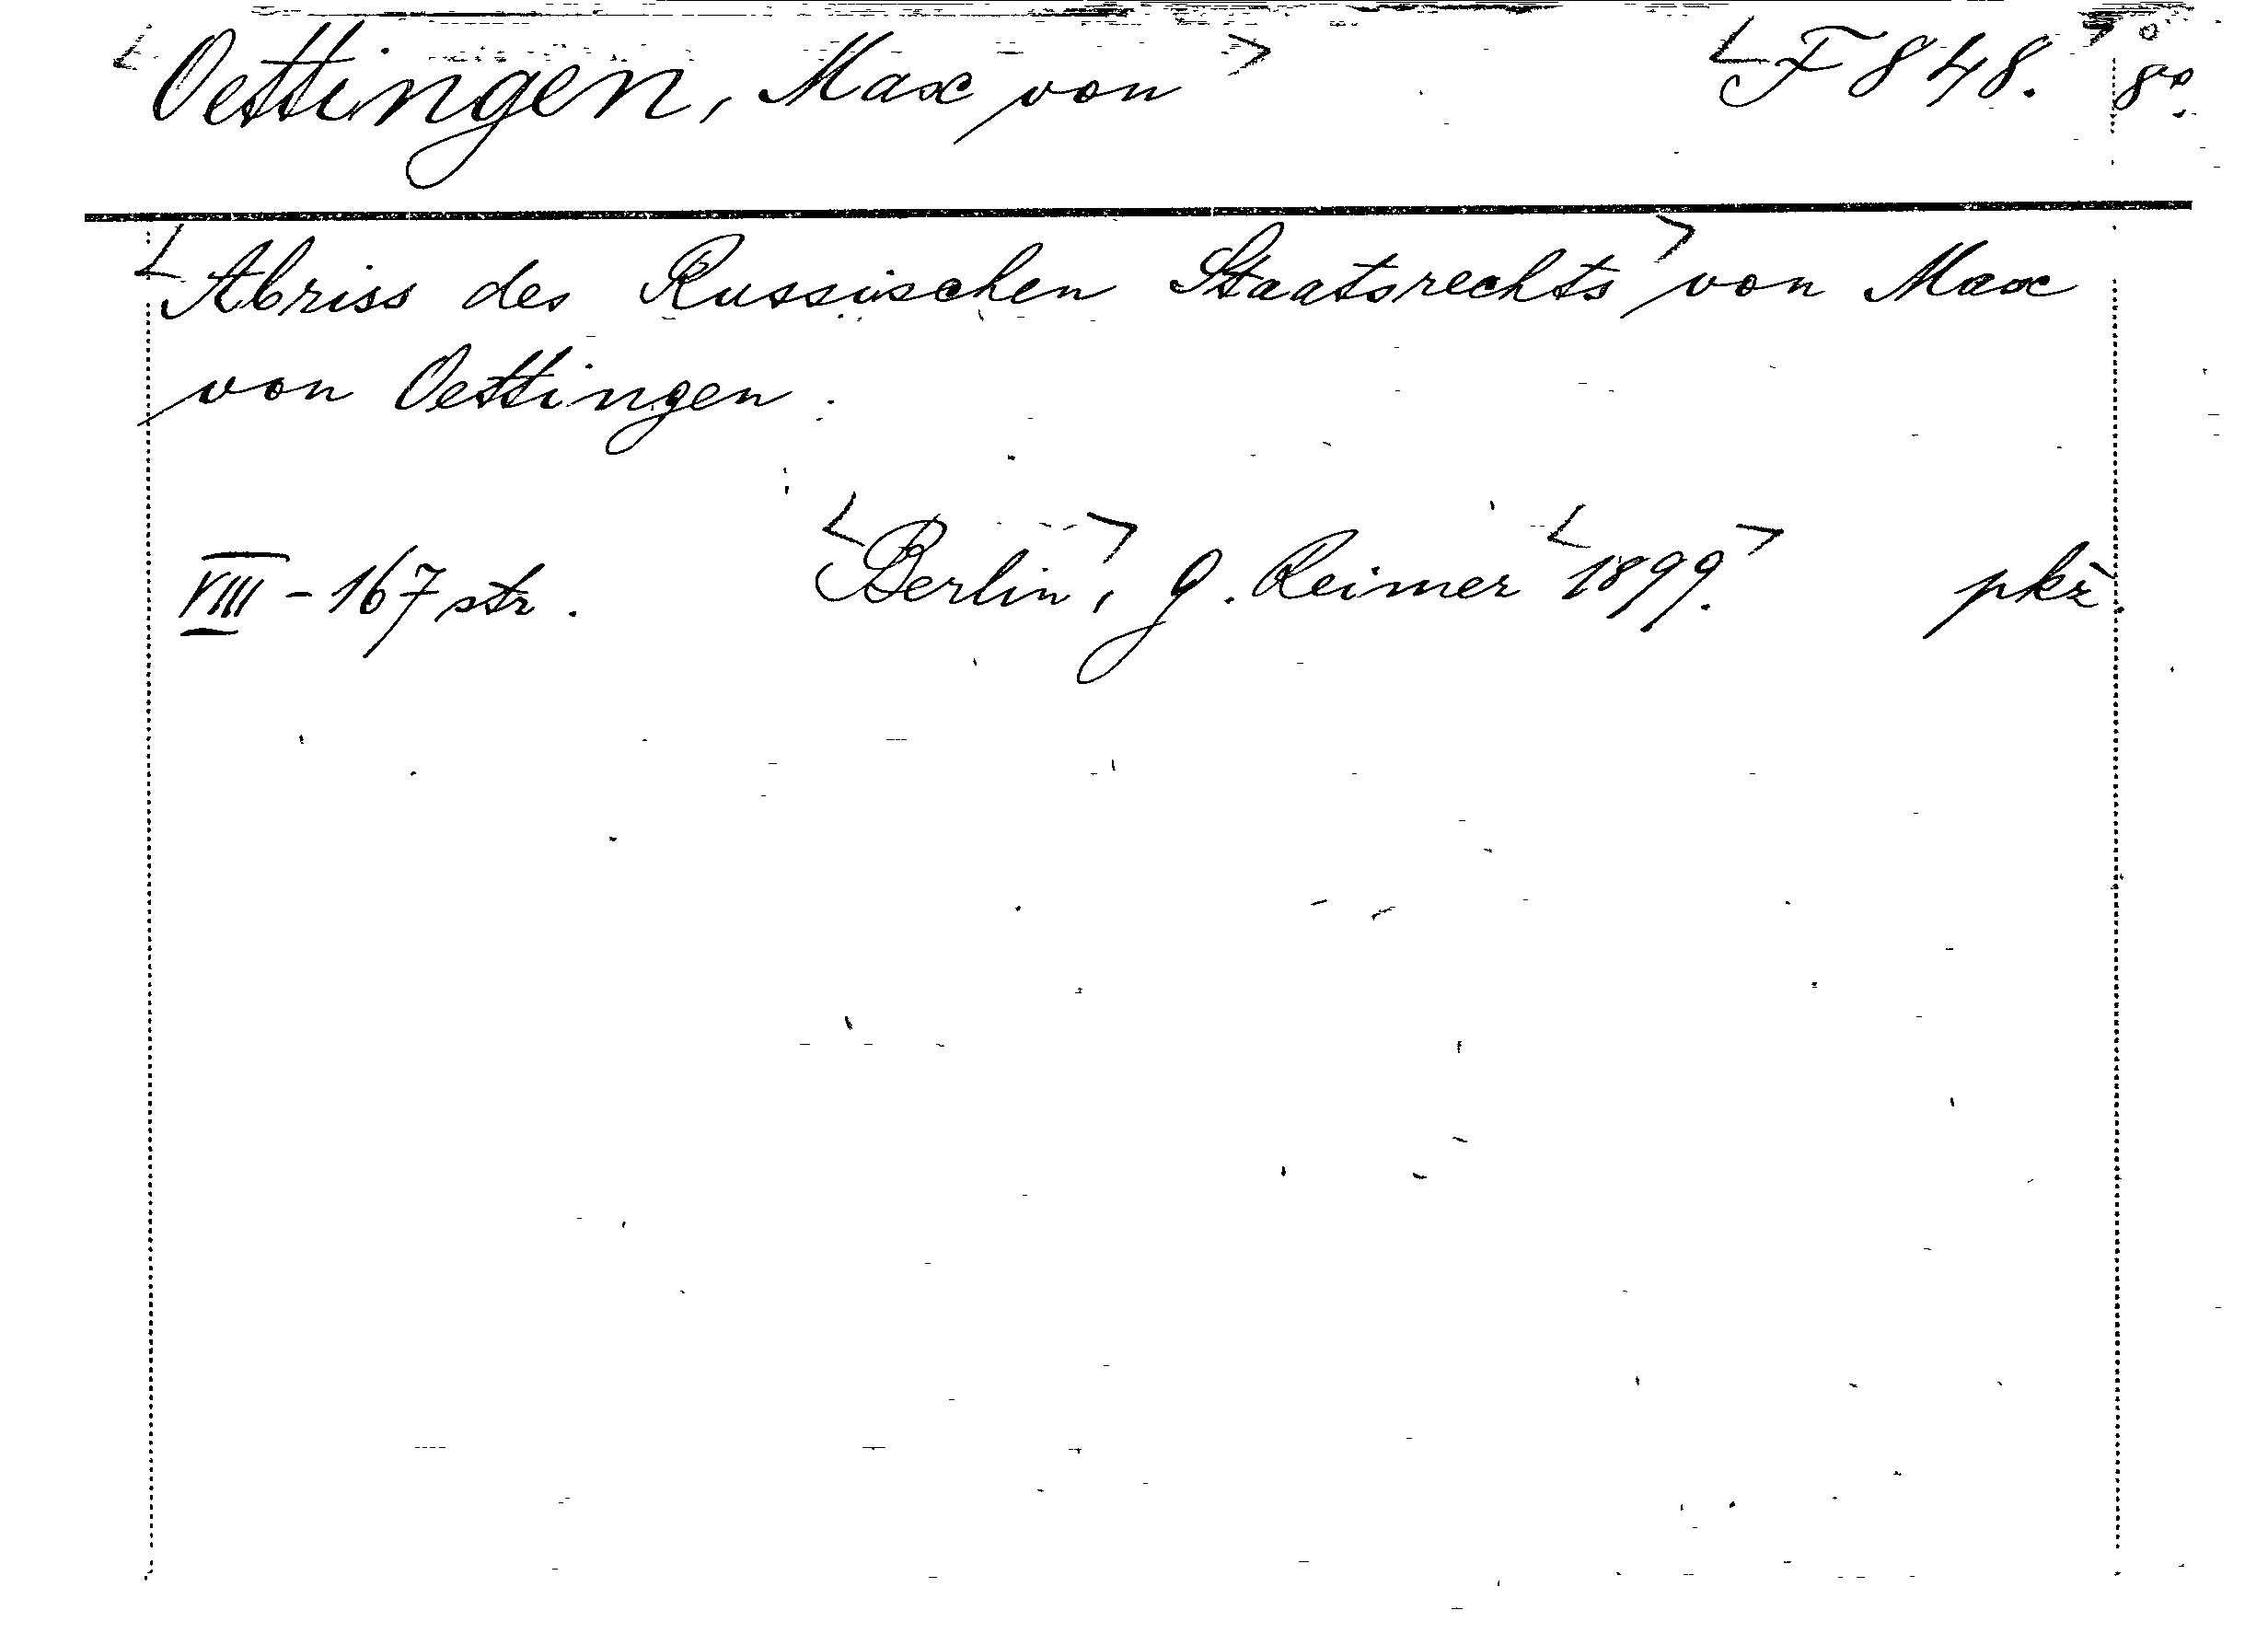 <Oettingen, Max von> <F 848.> 8°
<Abriss des Russischen Staatsrechts> von Max
von Oettingen.
VIII - 167 str. <Berlin>, G. Reimer <1899.> pkž.